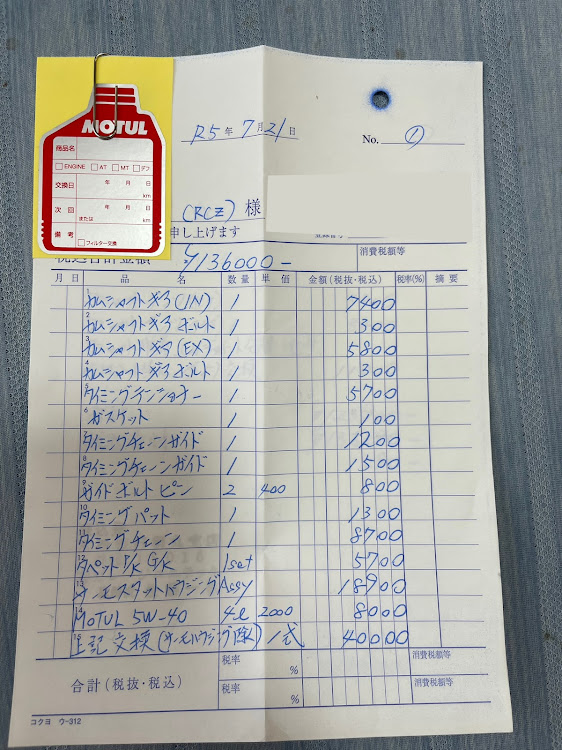 R5年 7月 21日
No. ①
MOTUL
商品名
ENGINE AT MT デフ
交換日 年 月 日
km
次回 年 月 日
または km
備考
フィルター交換
(RCZ) 様
申し上げます
税込合計金額 ¥136000-
消費税額等
月 日 品 名 数量 単価 金額(税抜・税込) 税率(%) 摘要
1 カムシャフトギヤ(IN) 1 7400
2 カムシャフトギヤ ボルト 1 300
3 カムシャフトギヤ(EX) 1 5800
4 カムシャフトギヤ ボルト 1 300
5 タイミングテンショナー 1 5700
6 ガスケット 1 100
7 タイミングチェーンガイド 1 1200
8 タイミングチェーンガイド 1 1500
9 ガイドボルト ピン 2 400 800
10 タイミングパット 1 1300
11 タイミングチェーン 1 8700
12 タペット P/K G/K 1set 5700
13 サーモスタットハウジング Assy 18900
14 MOTUL 5W-40 4ℓ 2000 8000
15 上記交換(サーモハウジング除) 1式 40000
合計(税抜・税込)
税率 % 消費税額等
税率 % 消費税額等
コクヨ ウ-312